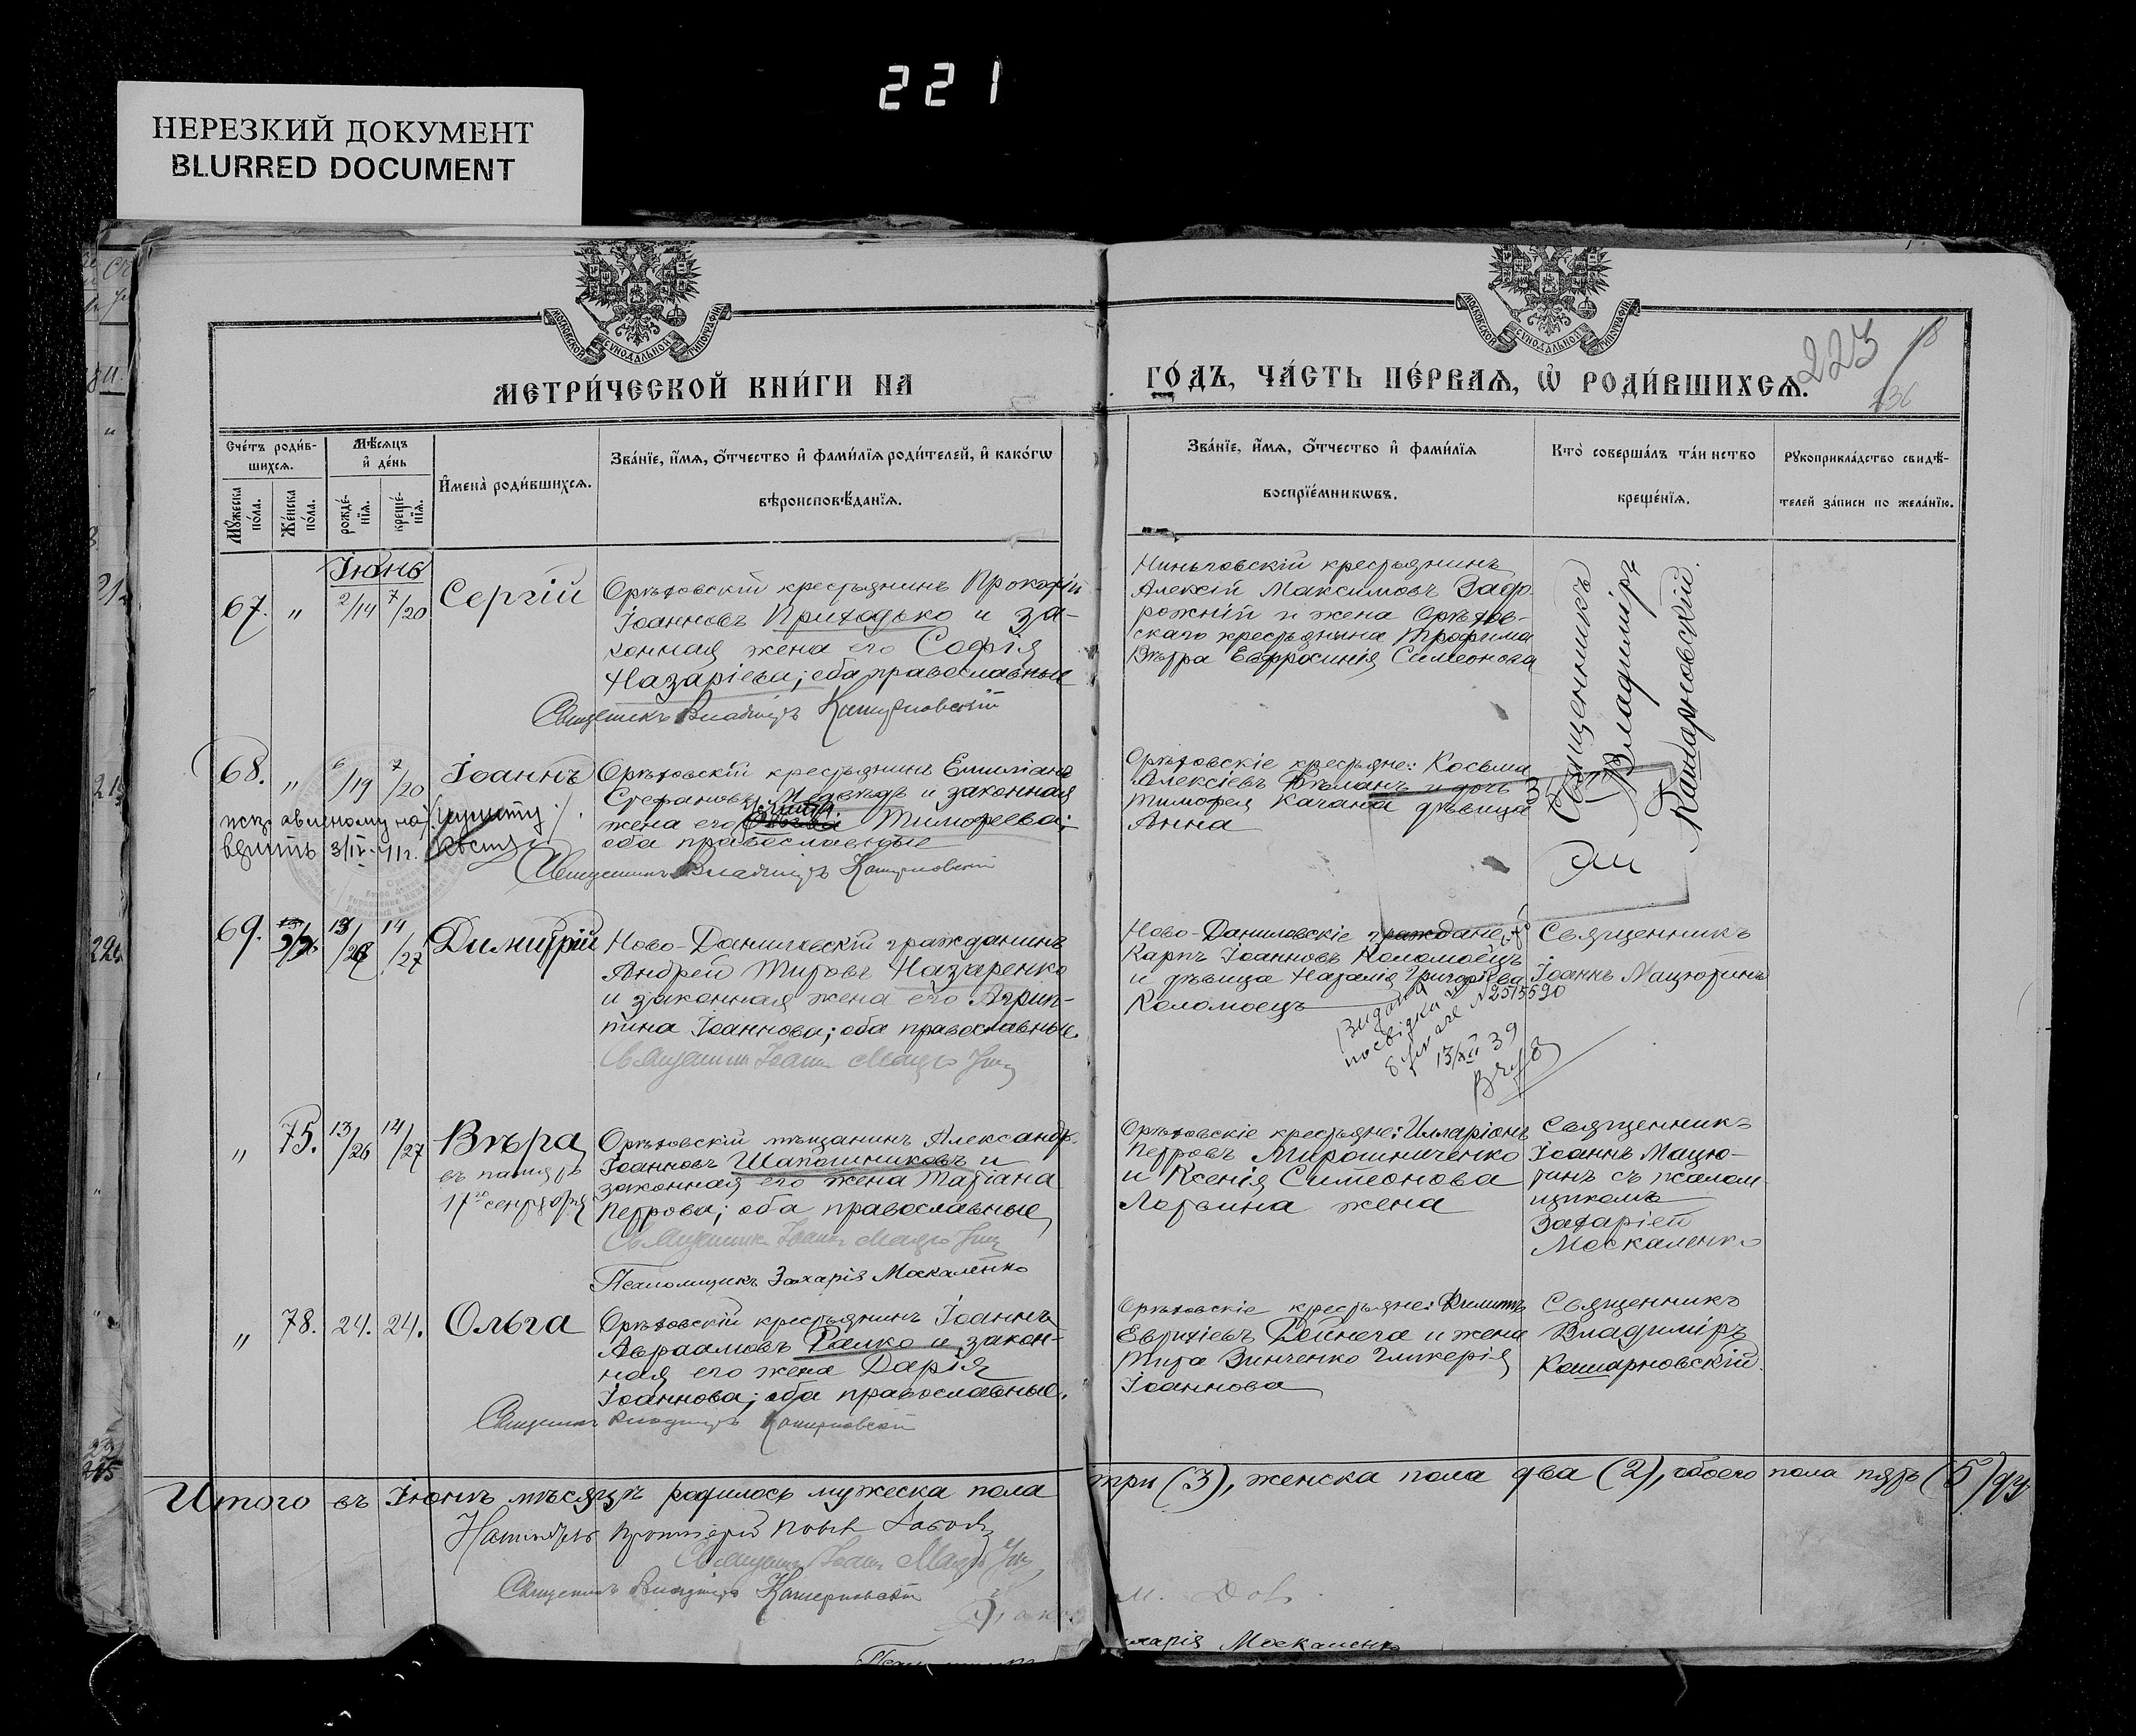 221
НЕРЕЗКИЙ ДОКУМЕНТ
BLURRED DOCUMENT
МОСКОВСКОЙ СУНОДАЛЬНОЙ ТИПОГРАФІИ
МОСКОВСКОЙ СУНОДАЛЬНОЙ ТИПОГРАФІИ
223
236
МЕТРИ́ЧЕСКОЙ КНИ́ГИ НА
ГО́ДЪ, ЧА́СТЬ ПЕ́РВАѦ, Ѡ҆ РОДИ́ВШИХСѦ.
Сче́тъ роди́в-
шихсѧ.
Мꙋ́жеска
по́ла.
Же́нска
по́ла.
Мѣ́сѧцъ
и҆ де́нь
рожде́-
нїѧ.
креще́-
нїѧ.
И҆мена̀ роди́вшихсѧ.
Зва́нїе, и҆́мѧ, ѻ҆́тчество и҆ фами́лїѧ роди́телей, и҆ како́гѡ
вѣроисповѣ́данїѧ.
Зва́нїе, и҆́мѧ, ѻ҆́тчество и҆ фами́лїѧ
воспрїе́мникѡвъ.
Кто̀ соверша́лъ та́инство
креще́нїѧ.
Рꙋкоприкла́дство свидѣ́-
телей за́писи по жела́нїю.
Іюнь
67. " 2/14 7/20 Сергій
Орѣховскій крестьянинъ Прокофій
Іоанновъ Приходько и за-
конная жена его Софія
Назаріева; оба православные
Священникъ Владиміръ Кошарновскій
крестьянинъ
Алексій Максимовъ Запо
рожній и жена Орѣхов-
скаго крестьянина Трофима
Вѣтра Евфросинія Симеонова
Священникъ
Владиміръ
Кошарновскій.
68. " 6/19 7/20 Іоаннъ
Орѣховскій крестьянинъ Емиліанъ
Стефановъ Медвѣдь и законная
жена его Тимофеева;
оба православные
Священникъ Владиміръ Кошарновскій
вѣрить 3/IV-41г.
Орѣховскіе крестьяне: Косьма
Алексіевъ Бѣланъ и дочь
Тимофея Качана дѣвица
Анна
69. 13/26 14/27 Димитрій
Ново-Даниловскій гражданинъ
Андрей Титовъ Назаренко
и законная жена его Агрип-
пина Іоаннова; оба православные.
Священникъ Іоаннъ Мацютинъ
Ново-Даниловскіе граждане:
Карпъ Іоанновъ Коломоецъ
и дѣвица Наталія Григоріева
Коломоецъ
Видана
посвідка
№ 2515590
13/XII 39
Священникъ
Іоаннъ Мацютинъ
" 75. 13/26 14/27 Вѣра
въ память
17го сентября
Орѣховскій мѣщанинъ Александръ
Іоанновъ Шапошниковъ и
законная его жена Татіана
Петрова; оба православные
Священникъ Іоаннъ Мацютинъ
Псаломщикъ Захарія Москаленко
Орѣховскіе крестьяне: Илларіонъ
Петровъ Мирошниченко
и Ксенія Симеонова
Логвина жена
Священникъ
Іоаннъ Мацю-
тинъ съ псалом
щикомъ
Захаріей
Москаленко
" 78. 24. 24. Ольга
Орѣховскій крестьянинъ Іоаннъ
Авраамовъ Ралко и закон-
ная его жена Дарія
Іоаннова; оба православные.
Священникъ Владиміръ Кошарновскій
Орѣховскіе крестьяне: Филиппъ
Евтихіевъ Дейнега и жена
Тита Зинченко Гликерія
Іоаннова
Священникъ
Владиміръ
Кошарновскій.
Итого въ Іюнѣ мѣсяцѣ родилось мужеска пола три (3), женска пола два (2), обоего пола пять (5) душ
Настоятель протоіерей
Священникъ Іоаннъ Мацютинъ
Священникъ Владиміръ Кошарновскій
Захарія Москаленко